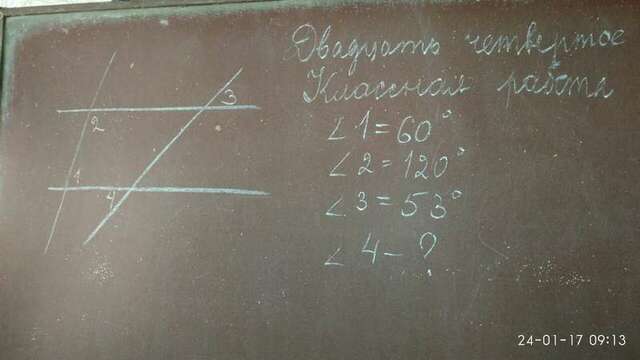 Двадцать четвертое
Классная работа
3
2
1
4
∠1=60°
∠2=120°
∠3=53°
∠4-?
24-01-17 09:13